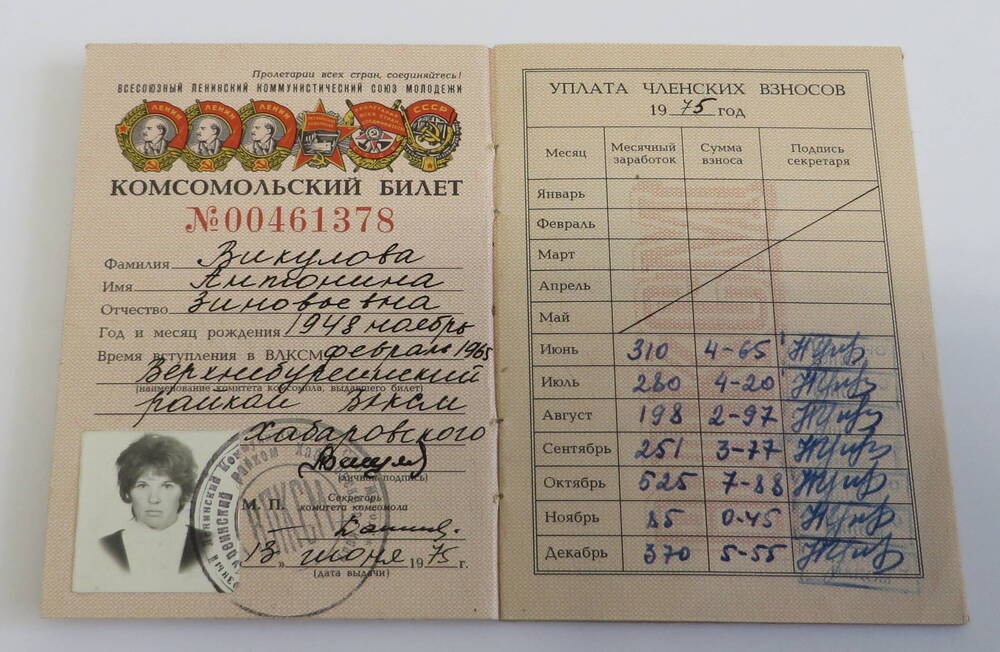 Пролетарии всех стран, соединяйтесь!
ВСЕСОЮЗНЫЙ ЛЕНИНСКИЙ КОММУНИСТИЧЕСКИЙ СОЮЗ МОЛОДЕЖИ
ЛЕНИН ЛЕНИН ЛЕНИН СССР
КОМСОМОЛЬСКИЙ БИЛЕТ
№00461378
Фамилия Викулова
Имя Антонина
Отчество Зиновьевна
Год и месяц рождения 1948 ноябрь
Время вступления в ВЛКСМ февраль 1965
Верхнебуреинский
(наименование комитета комсомола, выдавшего билет)
райком ВЛКСМ
Хабаровского
(личная подпись)
М. П. Секретарь
комитета комсомола
ВЛКСМ
13 » июня 1975 г.
(дата выдачи)
УПЛАТА ЧЛЕНСКИХ ВЗНОСОВ
1975 год
Месяц Месячный заработок Сумма взноса Подпись секретаря
Январь
Февраль
Март
Апрель
Май
Июнь 310 4-65
Июль 280 4-20
Август 198 2-97
Сентябрь 251 3-77
Октябрь 525 7-88
Ноябрь 85 0-45
Декабрь 370 5-55